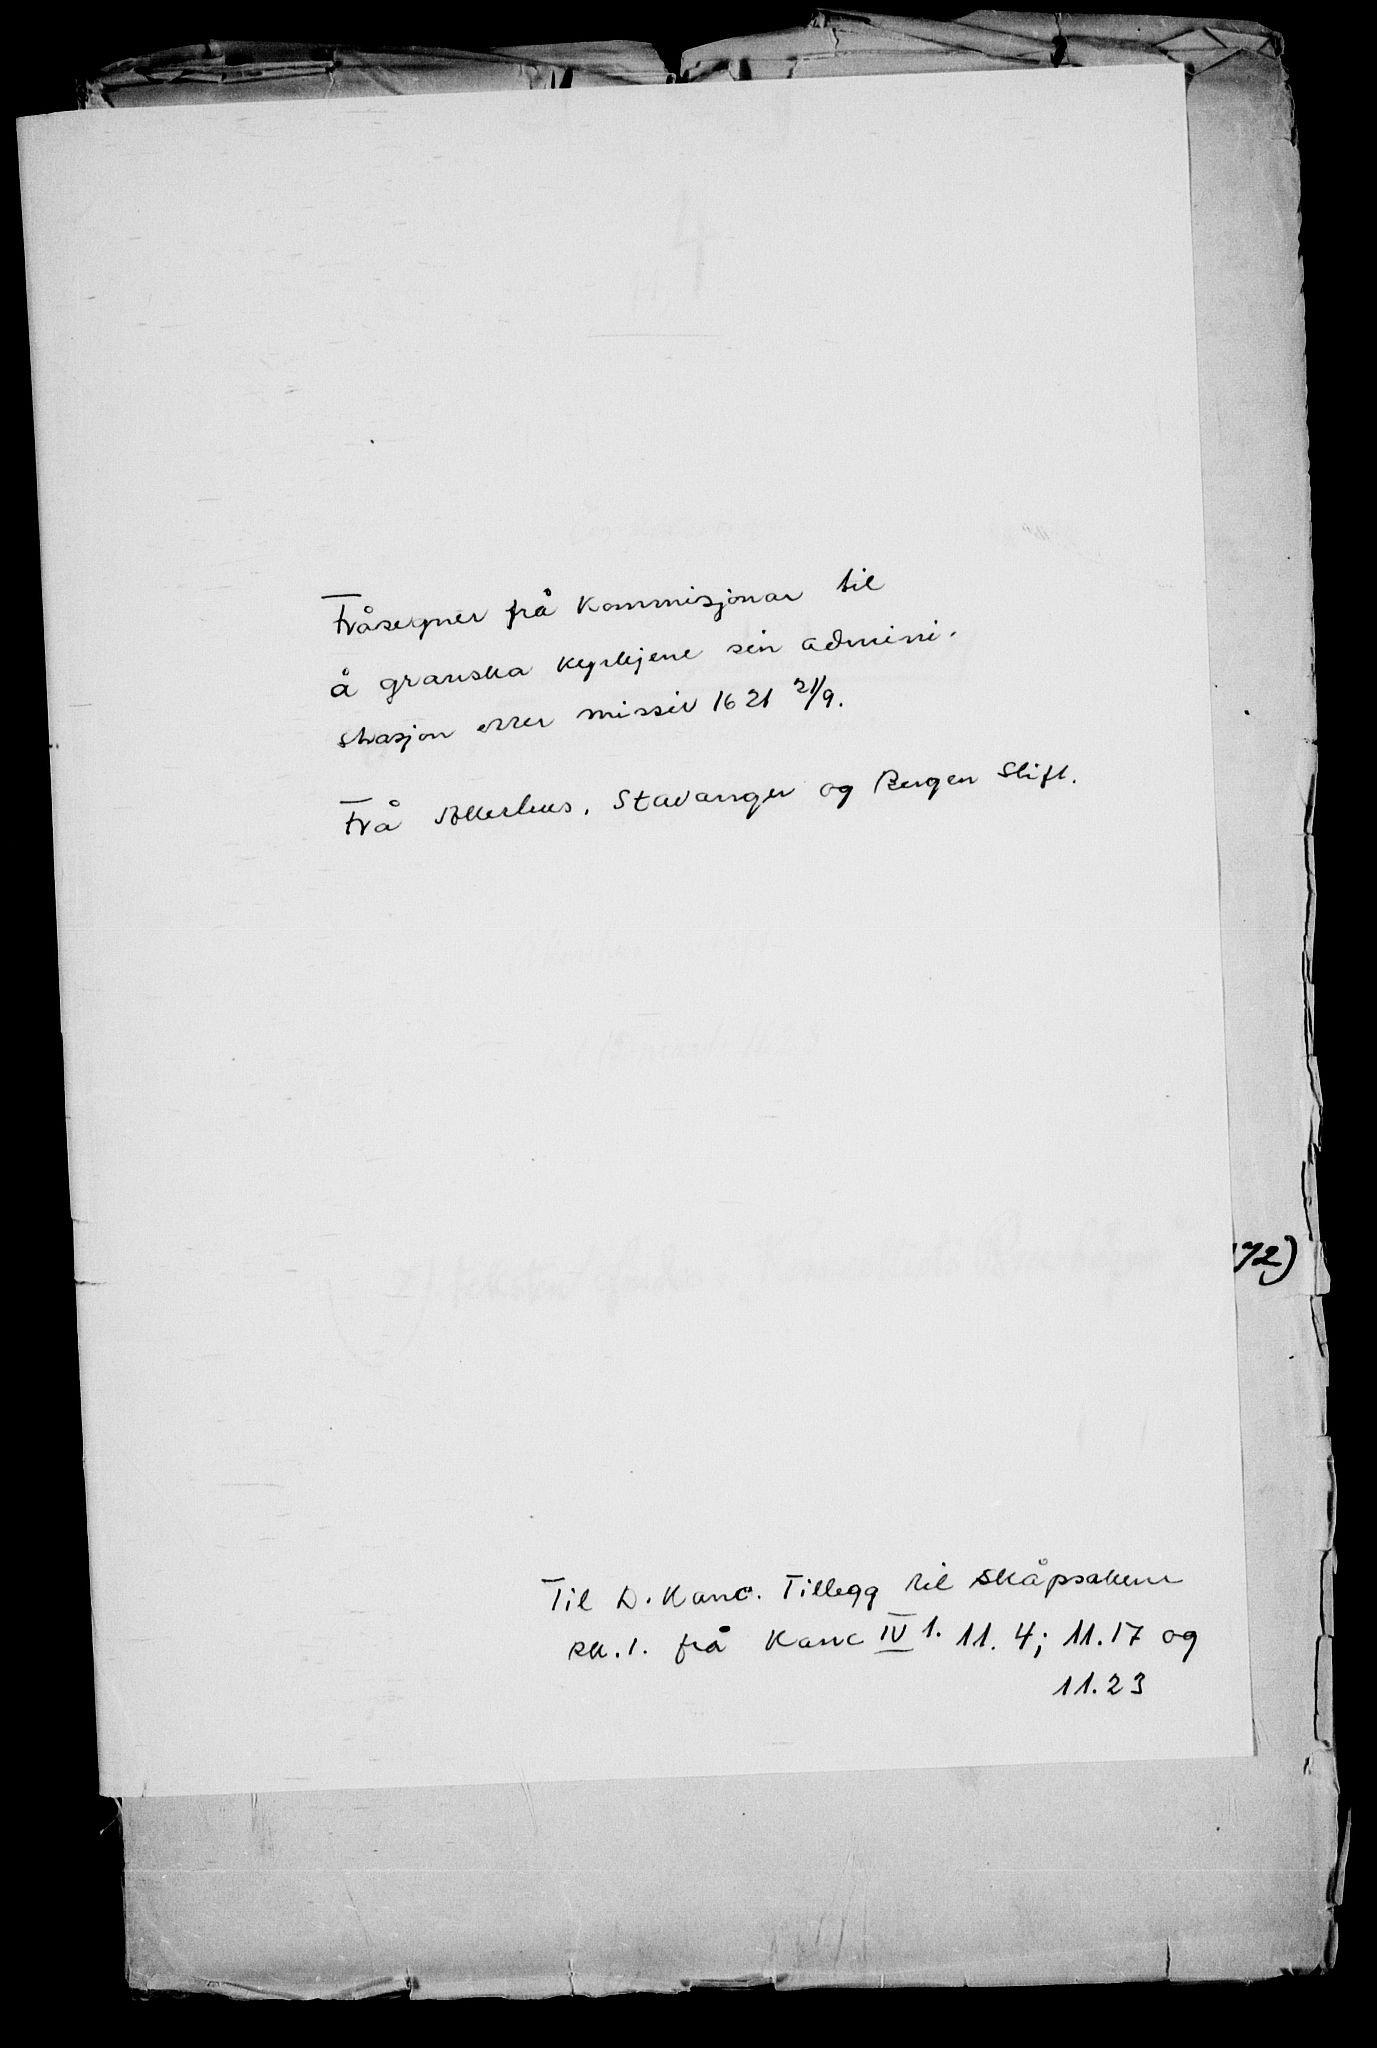 Fråsegner frå Kommisjonar til
å granska kyrkjene sin admini-
strasjon etter missiv 1621 21/9.
Frå Akershus, Stavanger og Bergen Stift.
72)
Til D. Kanc. Tillegg til Skåpsakene
sk. 1. frå Kanc IV 1. 11. 4; 11. 17 og
11. 23